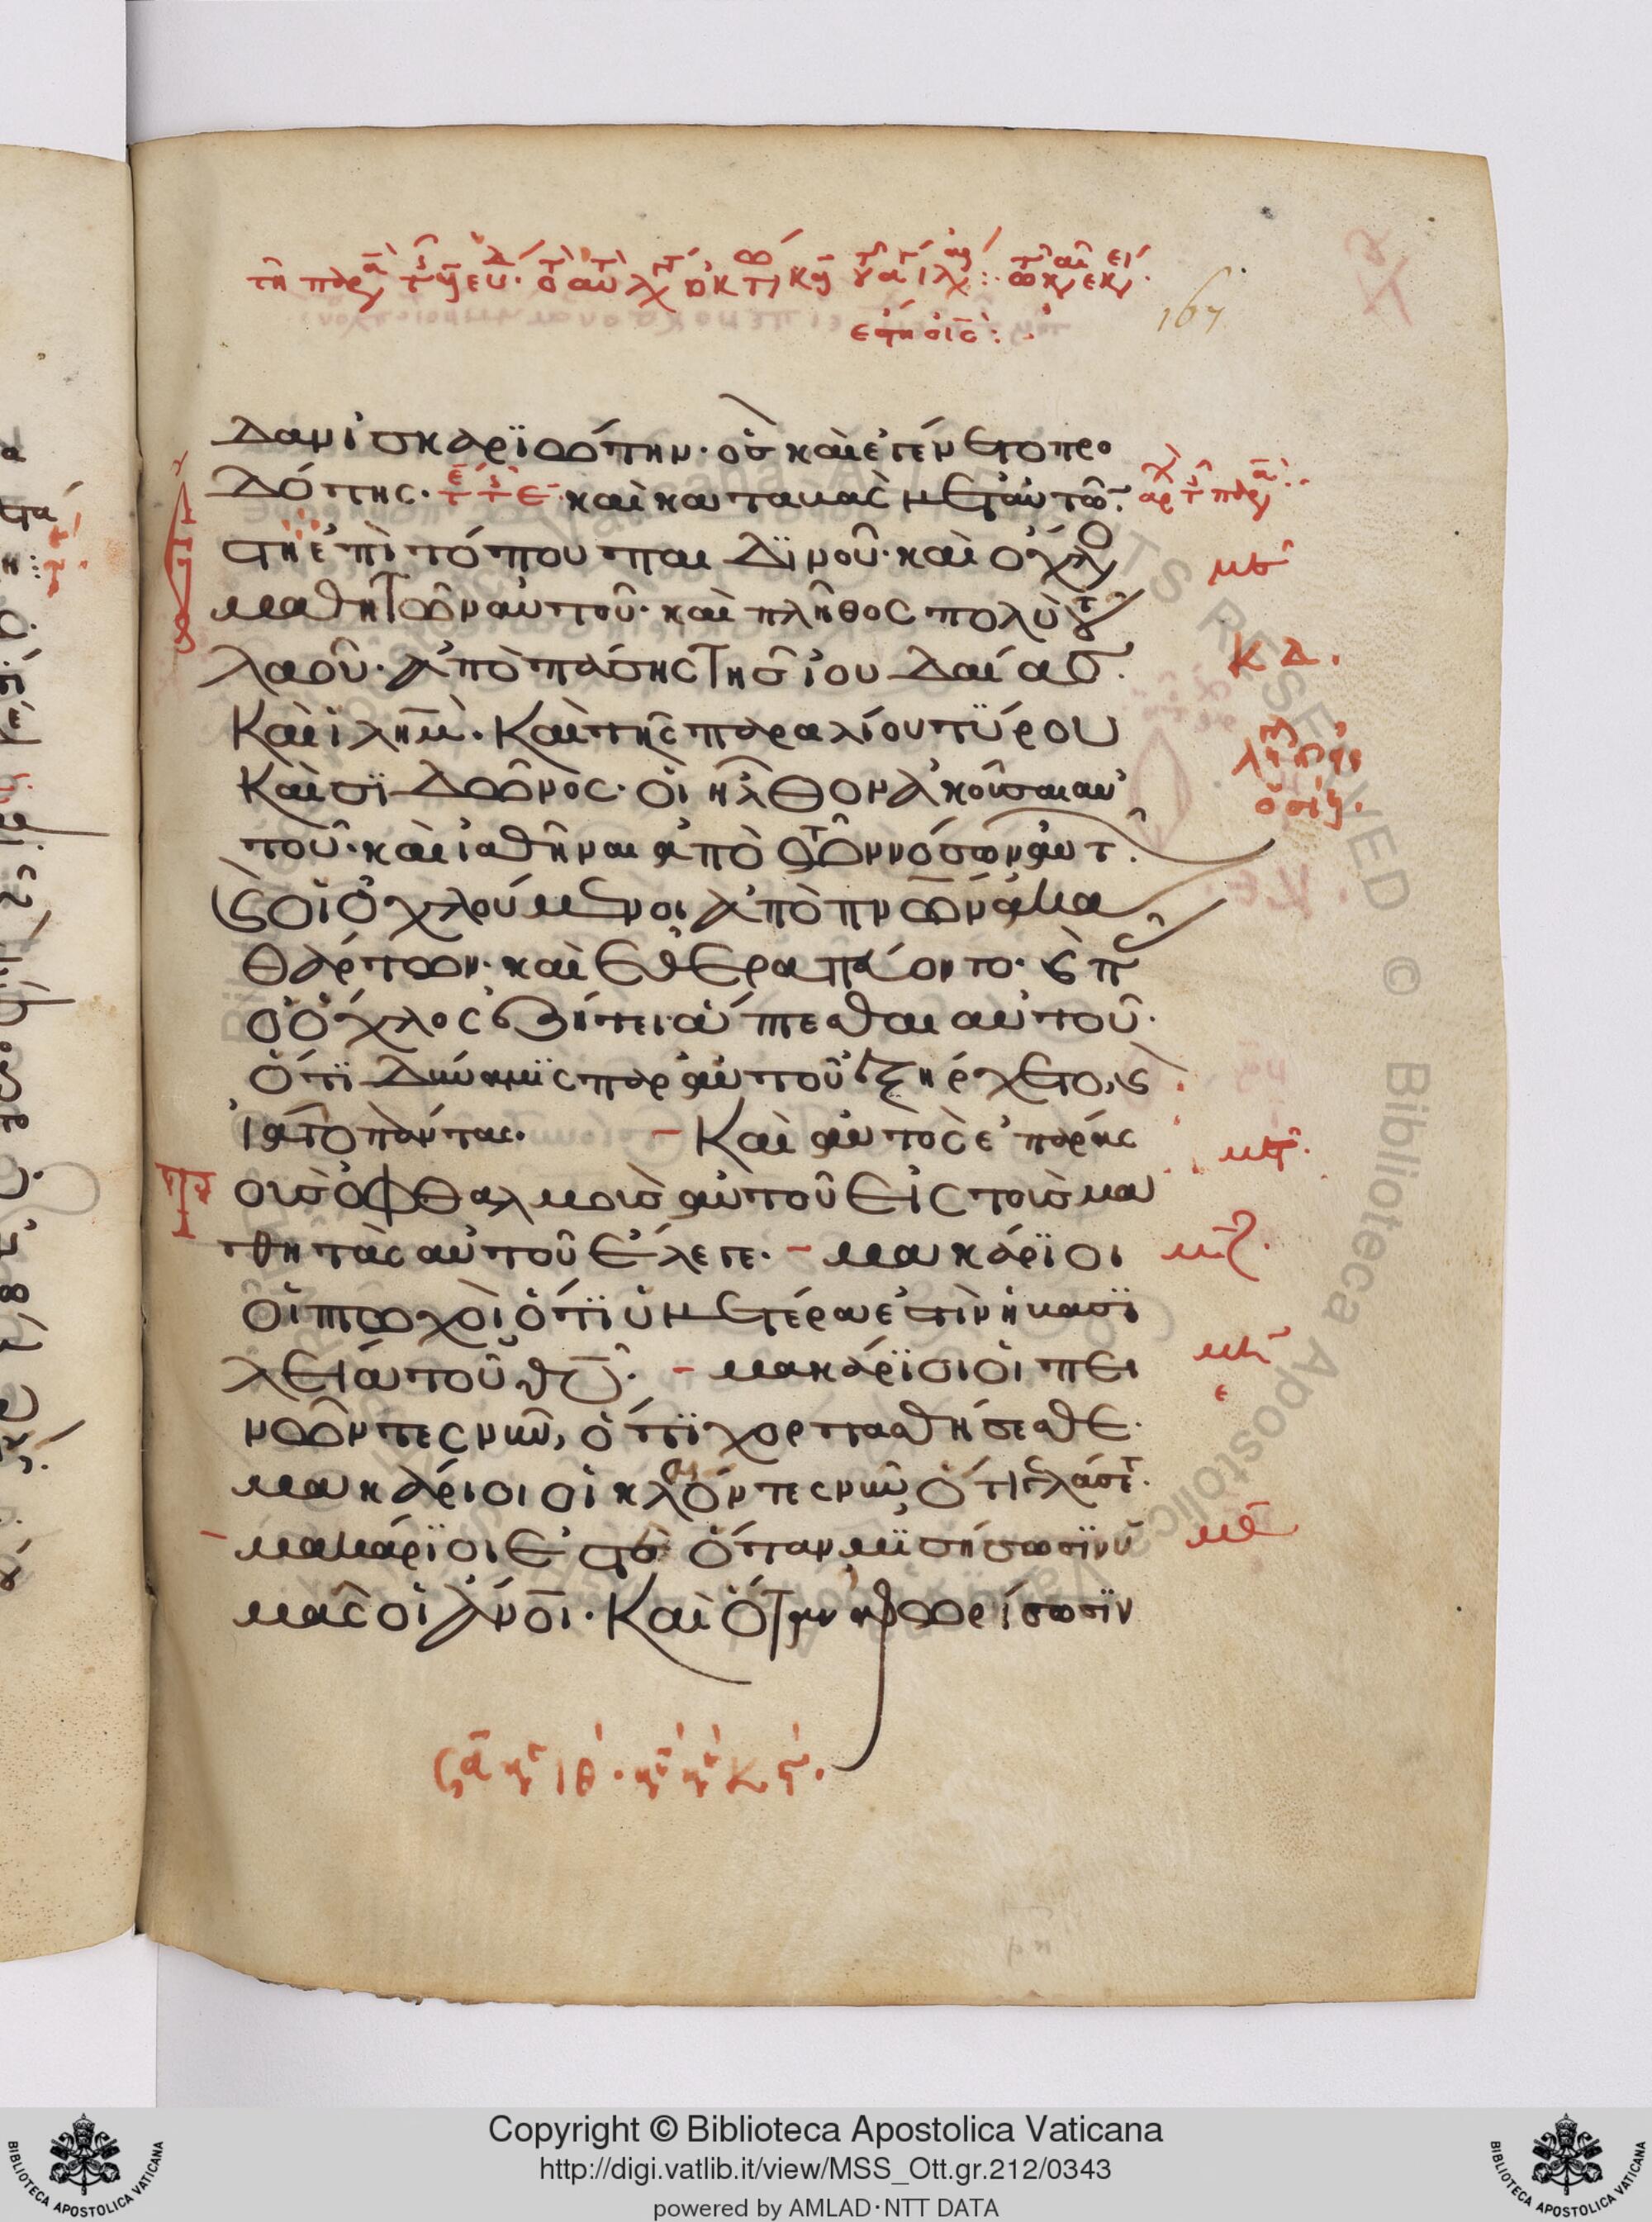 167
δαν ἰσκαρϊώτην· ὁσ καὶ ἐγένετο προ
δότης. και καταβὰς μετ αὐτῶ̅
ἔστη ἐπὶ τόπου παιδϊνοῦ· καὶ ὄχλο
μαθητῶν αὐτοῦ· καὶ πλῆθος πολὺ τ
λαοῦ· ἀπὸ πάσης τησ ϊουδαίασ.
Καὶ ϊλη̅μ̅. Καὶ τῆς παραλίου τΰρου
Καὶ σϊδῶνος· οἱ ἦλθον ἀκοῦσαι αυ
τοῦ· καὶ ἰαθῆναι ἀπὸ τῶν νόσων αὐτ.
ϗ οἱ ὀχλούμενοι ἀπὸ πν̅ων ἀκα
θάρτων· καὶ ἐθεραπεύοντο· ϗ π
ὁ ὄχλος ἐζήτει ἅπτεσθαι αὐτοῦ·
ὅτϊ δύναμϊς παρ αὐτοῦ ἐξήρχετο, ϗ
ἰᾶτο πάντας. Καὶ αὐτὸς ἐπάρας
Τοὺσ ὀφθαλμοὺσ αὐτοῦ εἰς τοὺσ μα
θητὰς αὐτοῦ ἔλεγε. μακάρϊοι
οἱ πτωχοὶ ὅτϊ ὑμετέρα ἐστὶν ἡ βασϊ
λεία τοῦ θυ̅. μακάρϊοι οἱ πει
νῶντες νῦν, ὅτϊ χορτασθήσεσθε.
μακάριοι οἱ κλαίοντες νῦν ὅτι γελάσετ.
μακάρϊοι ἐστὲ ὅταν μϊσήσωσϊν ὑ
μᾶς οἱ ἀν̅οι. Καὶ ὅταν ἀφωρίσωσϊν
Copyright © Biblioteca Apostolica Vaticana
http://digi.vatlib.it/view/MSS_Ott.gr.212/0343
powered by AMLAD·NTT DATA
BIBLIOTECA APOSTOLICA VATICANA
BIBLIOTECA APOSTOLICA VATICANA